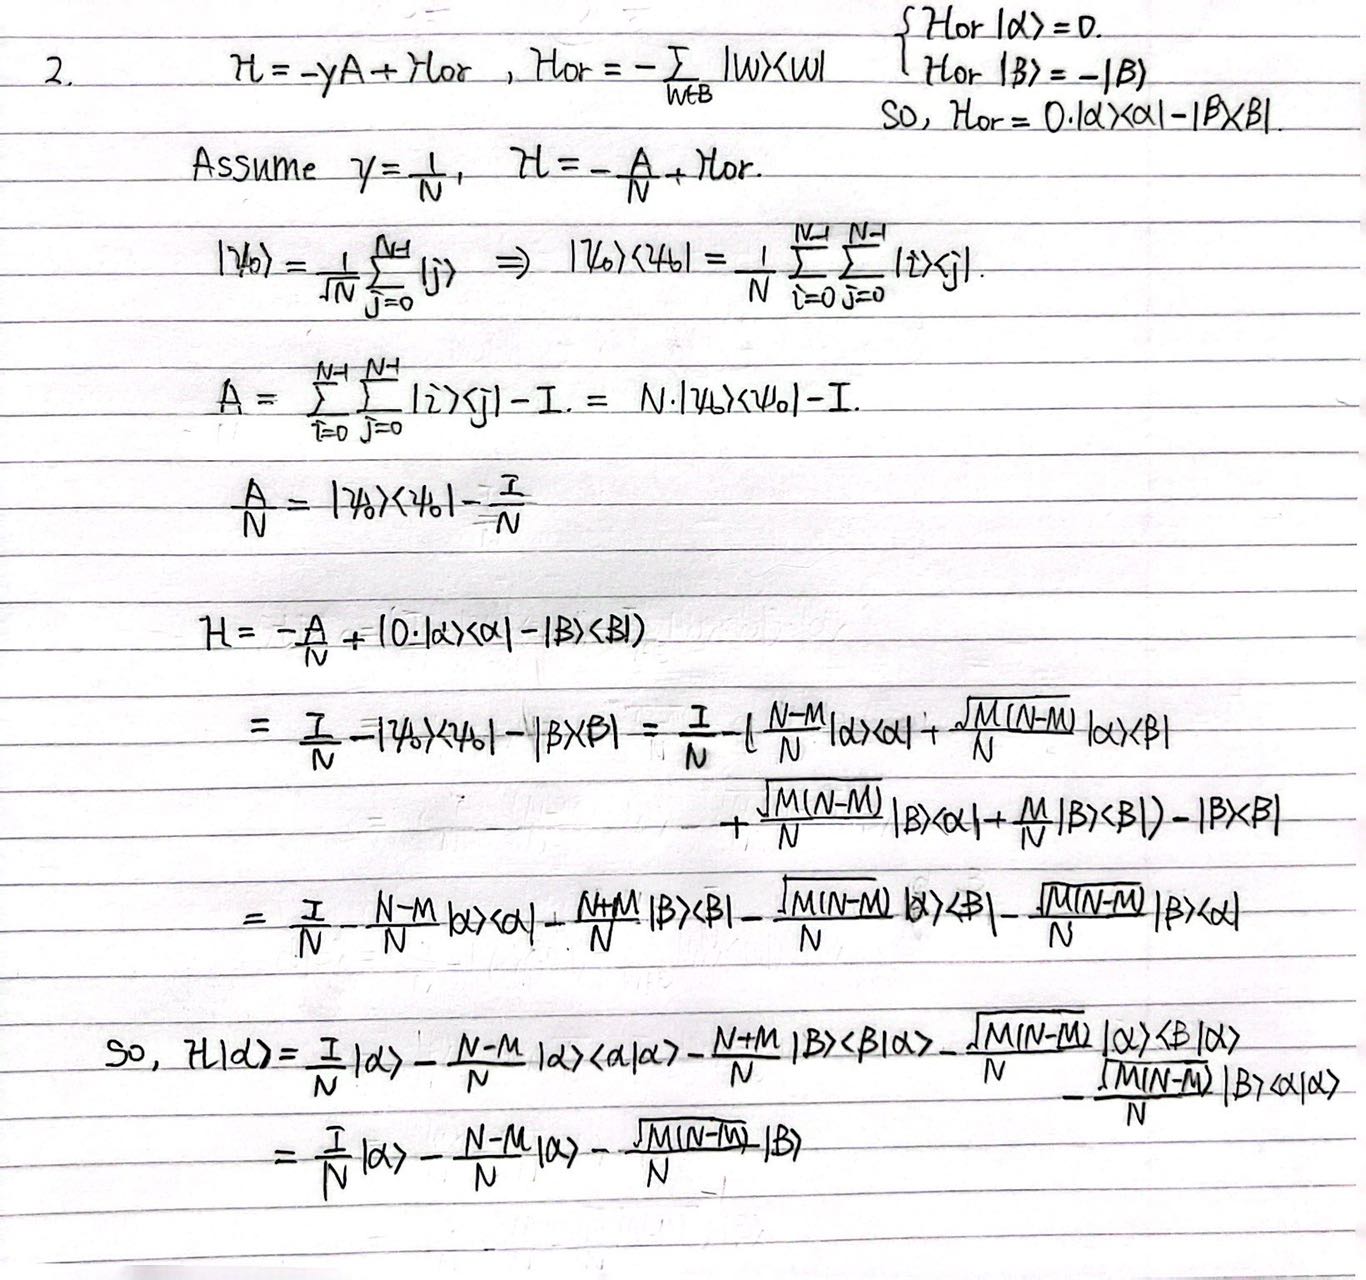 2. H = -γA + Hor , Hor = - Σ_{W∈B} |W><W| { Hor |α> = 0.
Hor |B> = -|B>
SO, Hor = 0·|α><α| - |B><B|.
Assume γ = 1/N, H = - A/N + Hor.
|ψ0> = 1/√N Σ_{j=0}^{N-1} |j> ⇒ |ψ0><ψ0| = 1/N Σ_{i=0}^{N-1} Σ_{j=0}^{N-1} |i><j|.
A = Σ_{i=0}^{N-1} Σ_{j=0}^{N-1} |i><j| - I. = N·|ψ0><ψ0| - I.
A/N = |ψ0><ψ0| - I/N
H = -A/N + (0·|α><α| - |B><B|)
= I/N - |ψ0><ψ0| - |B><B| = I/N - ( (N-M)/N |α><α| + √(M(N-M))/N |α><B|
+ √(M(N-M))/N |B><α| + M/N |B><B|) - |B><B|
= I/N - (N-M)/N |α><α| - (N+M)/N |B><B| - √(M(N-M))/N |α><B| - √(M(N-M))/N |B><α|
So, H|α> = I/N |α> - (N-M)/N |α><α|α> - (N+M)/N |B><B|α> - √(M(N-M))/N |α><B|α>
- √(M(N-M))/N |B><α|α>
= I/N |α> - (N-M)/N |α> - √(M(N-M))/N |B>